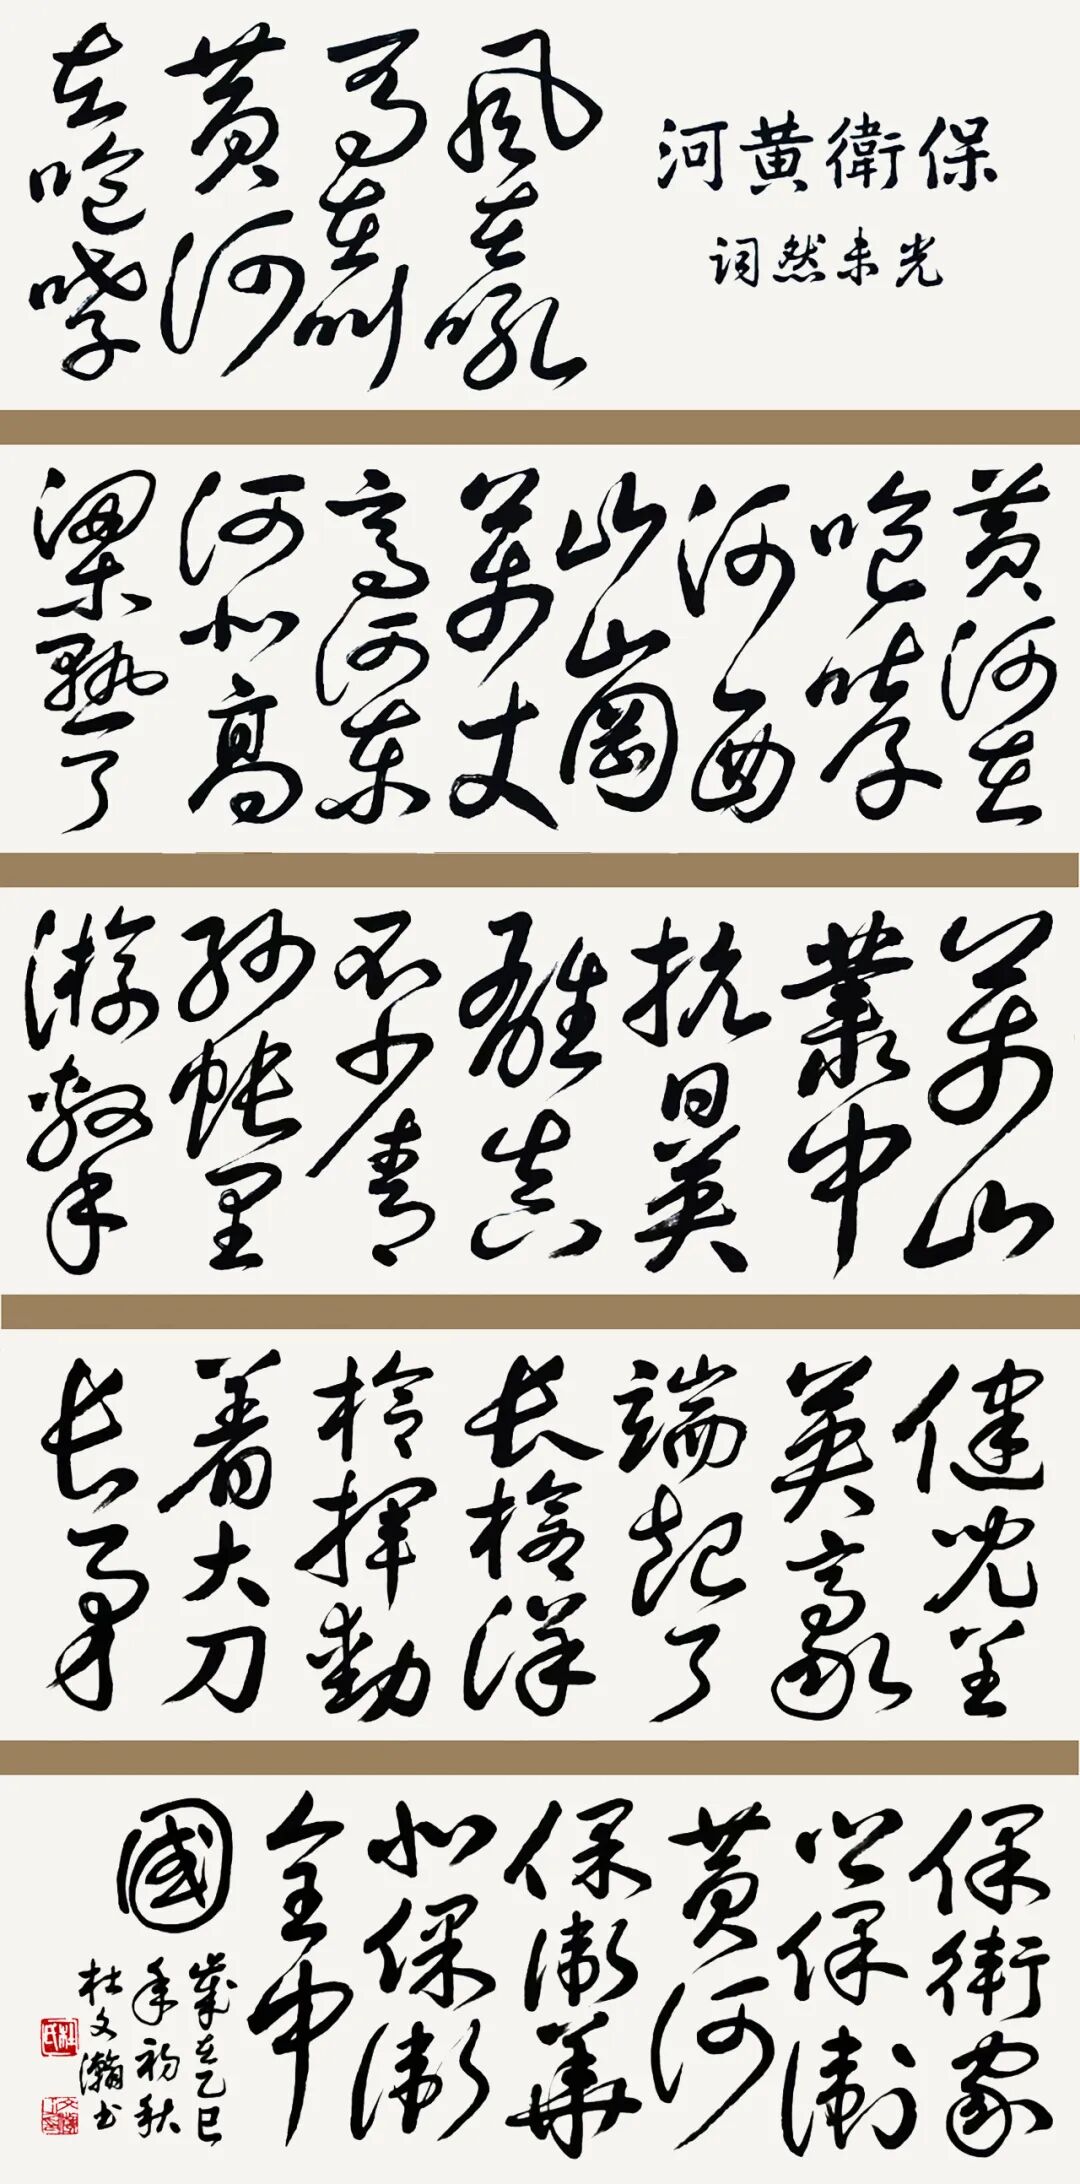 保衛黄河
光未然词
風在吼
馬在叫
黄河
在咆哮
黄河在
咆哮
河西
山崗
萬丈
高河東
河北高
梁熟了
萬山
叢中
抗日英
雄真
不少青
紗帐里
游擊
健兒呈
英豪
端起了
长槍洋
槍揮動
着大刀
长矛
保衛家
鄉保衛
黄河
保衛華
北保衛
全中
國
歲在乙巳
年初秋
杜文瀚书
杜氏